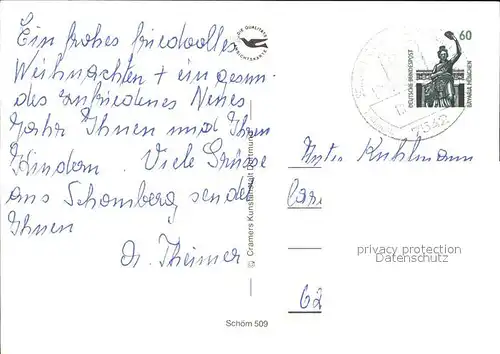 Ein frohes friedvolles
Weihnachten + ein gesun-
des zufriedenes Neues
Jahr Ihnen und Ihren
Kindern. Viele Grüsse
aus Schömberg sendet
Ihnen
Theimer
DIE QUALITÄTS
© Cramers Kunstanstalt Dortmund
Schöm 509
60
DEUTSCHE BUNDESPOST
BAVARIA MÜNCHEN
7542
Kuhlmann
privacy protection
Datenschutz
62